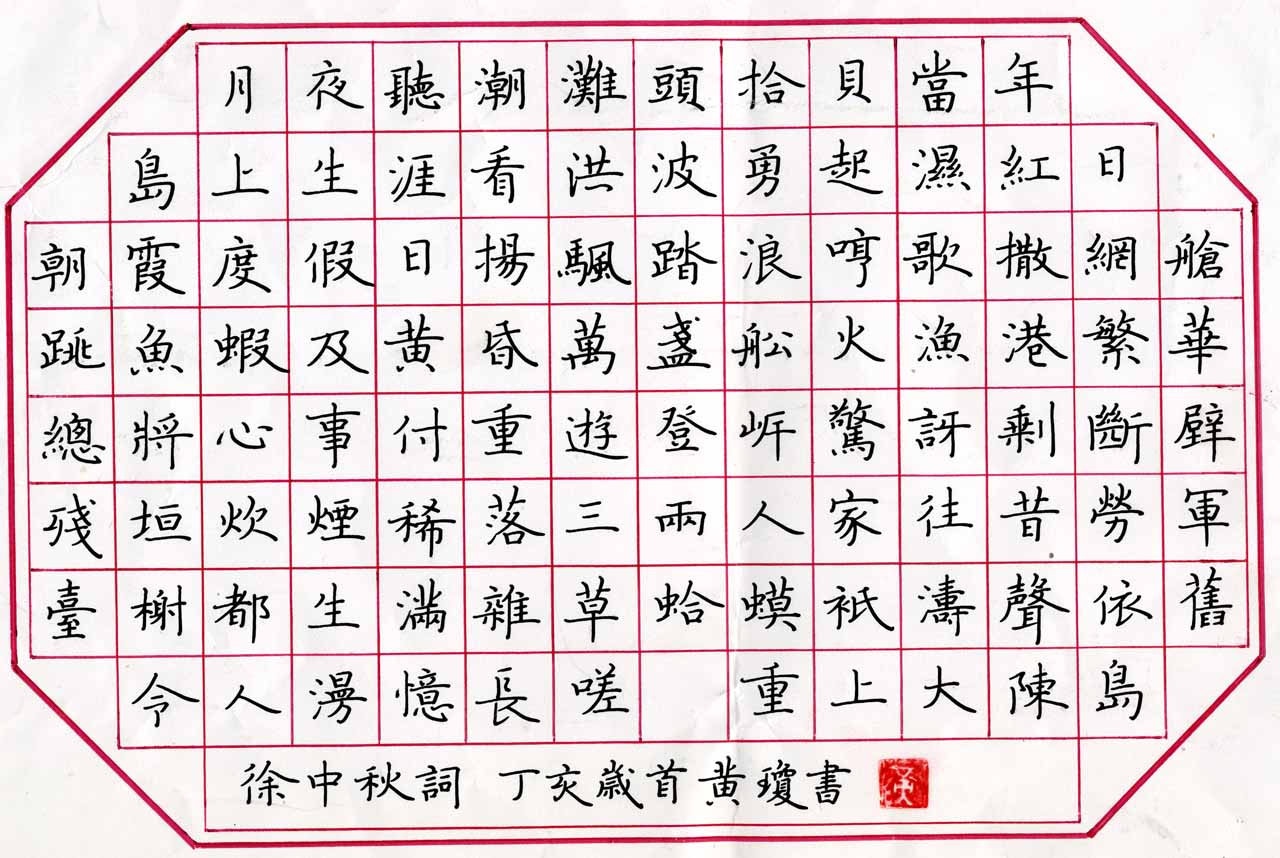 月夜聽潮灘頭拾貝當年
島上生涯看洪波勇起濕紅日
朝霞度假日揚颿踏浪哼歌撒網艙
跳魚蝦及黄昏萬盞舩火漁港繁華
總將心事付重遊登岍驚訝剩斷壁
殘垣炊煙稀落三兩人家往昔勞軍
臺榭都生滿雜草蛤蟆祇濤聲依舊
令人漫憶長嗟 重上大陳島
徐中秋詞 丁亥歲首黄瓊書